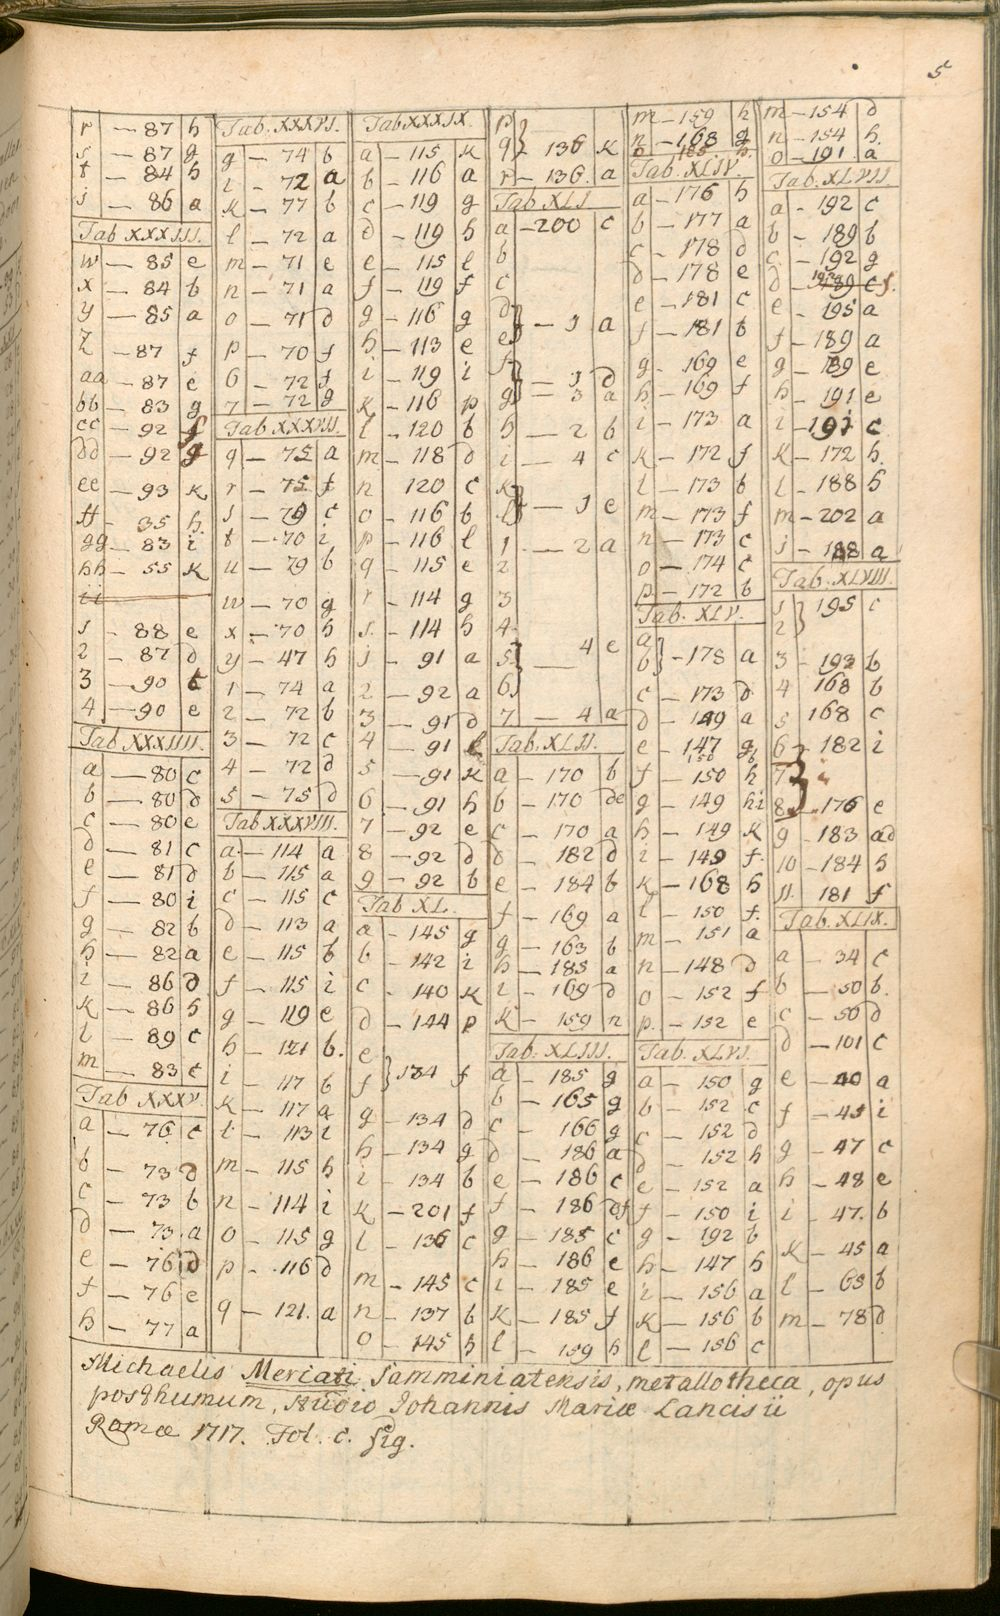 5
r — 87 h
s — 87 g
t — 84 h
j — 86 a
Tab XXXIII.
w — 85 e
x — 84 b
y — 85 a
z — 87 f
aa — 87 e
bb — 83 g
cc — 92 f
dd — 92 g
ee — 93 k
ff — 35 h.
gg — 83 i
hh — 55 k
ii
1 — 88 e
2 — 87 d
3 — 90 c
4 — 90 e
Tab XXXIIII.
a — 80 c
b — 80 d
c — 80 e
d — 81 c
e — 81 d
f — 80 i
g — 82 b
h — 82 a
i — 86 d
k — 86 h
l — 89 c
m — 83 c
Tab XXXV.
a — 76 c
b — 73 d
c — 73 b
d — 73. a
e — 76 d
f — 76 e
h — 77 a
Tab. XXXVI.
g — 74 b
i — 72 a
k — 77 b
l — 72 a
m — 71 e
n — 71 a
o — 71 d
p — 70 f
6 — 72 f
7 — 72 g
Tab XXXVII.
q — 75 a
r — 75 f
s — 79 c
t — 70 i
u — 79 b
w — 70 g
x — 70 h
y — 47 h
1 — 74 a
2 — 72 b
3 — 72 c
4 — 72 d
5 — 75 d
Tab XXXVIII.
a — 114 a
b — 115 a
c — 115 c
d — 113 a
e — 115 b
f — 115 i
g — 119 e
h — 121 b.
i — 117 b
k — 117 a
l — 113 i
m — 115 h
n — 114 i
o — 115 g
p — 116 d
q — 121. a
Tab XXXIX.
a — 115 k
b — 116 a
c — 119 g
d — 119 h
e — 115 l
f — 119 f
g — 116 g
h — 113 e
i — 119 i
k — 116 p
l — 120 b
m — 118 d
n 120 c
o — 116 b
p — 116 l
q — 115 e
r — 114 g
s. — 114 h
j — 91 a
2 — 92 a
3 — 91 d
4 — 91 l
5 — 91 k
6 — 91 h
7 — 92 e
8 — 92 d
9 — 92 b
Tab XL.
a — 145 g
b — 142 i
c — 140 k
d — 144 p
e
f } 134 f
g — 134 d
h — 134 g
i — 134 b
k — 201 f
l — 136 c
m — 145 c
n — 137 b
o — 145 h
p
q } 136 k
r — 136. a
Tab XLI
a — 200 c
b
c
d
e } — 3 a
f } — 3 d
g — 3 a
h — 2 b
i — 4 c
k
l } — 3 e
1 — 2 a
2
3
4
5 } — 4 e
6
7 — 4 a
Tab. XLII.
a — 170 b
b — 170 de
c — 170 a
d — 182 d
e — 184 b
f — 169 a
g — 163 b
h — 185 a
i — 169 d
k — 159 n
Tab. XLIII.
a — 185 g
b — 165 g
c — 166 g
d — 186 a
e — 186 c
f — 186 df
g — 185 c
h — 186 e
i — 185 e
k — 185 f
l — 159 h
m — 159 h
n — 168 g
o — 185 h.
Tab. XLIV.
a — 176 h
b — 177 a
c — 178 d
d — 178 e
e — 181 c
f — 181 b
g — 169 e
h — 169 f
i — 173 a
k — 172 f
l — 173 b
m — 173 f
n — 173 c
o — 174 c
p — 172 b
Tab. XLV.
a
b } — 178 a
c — 173 d
d — 149 a
e — 147 g
150 b
f — 150 h
g — 149 hi
h — 149 k
i — 149 f.
k — 168 h
l — 150 f.
m — 151 a
n — 148 d
o — 152 f
p. — 152 e
Tab. XLVI.
a — 150 g
b — 152 c
c — 152 d
d — 152 h
e — 152 a
f — 150 i
g — 192 b
h — 147 h
i — 156 a
k — 156 b
l — 156 c
m — 154 d
n — 154 h.
o — 191. a
Tab. XLVII.
a — 192 c
b — 189 b
c — 192 g
d — 189 c f.
e — 195 a
f — 189 a
g — 189 e
h — 191 e
i — 191 c
k — 172 h.
l — 188 h
m — 202 a
j — 188 a
Tab. XLVIII.
1
2 } 195 c
3 — 193 b
4 168 b
5 168 c
6 — 182 i
7
8 — 176 e
9 — 183 ad
10 — 184 h
11. 181 f
Tab. XLIX.
a — 34 c
b — 50 b.
c — 50 d
d — 101 c
e — 40 a
f — 45 i
g — 47 c
h — 48 e
i — 47. b
k — 45 a
l — 65 b
m — 78 d
Michaelis Mercati Samminiatensis, metallotheca, opus
posthumum, studio Johannis Mariæ Lancisii
Romæ 1717. Fol. c. fig.